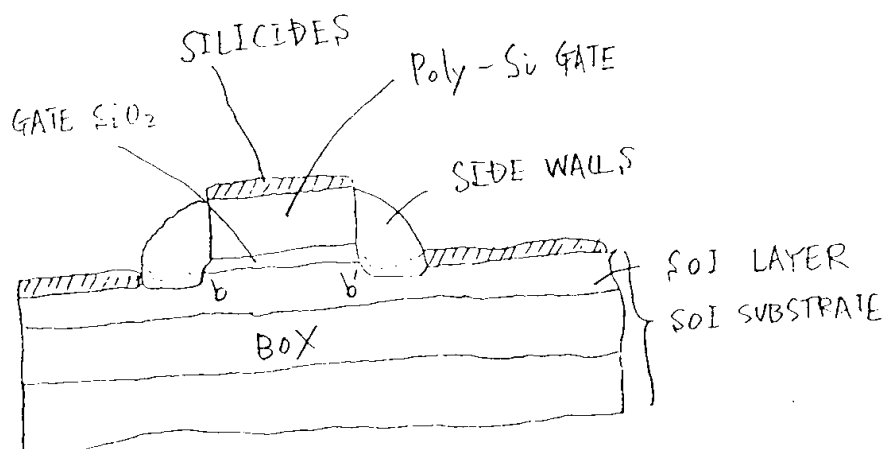 SILICIDES
Poly-Si GATE
GATE SiO₂
SIDE WALLS
b
b'
SOI LAYER
SOI SUBSTRATE
BOX